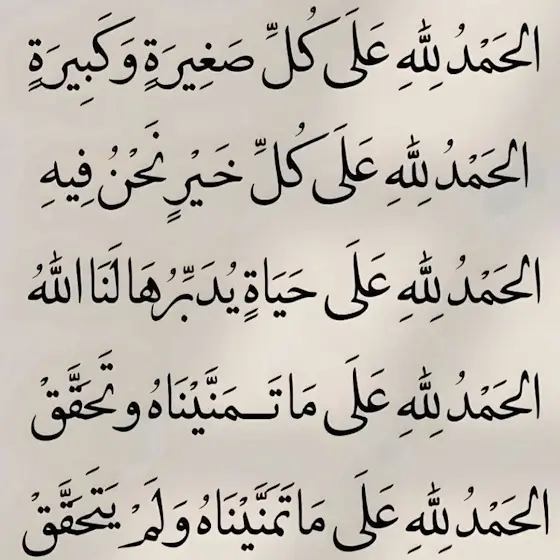 الحَمْدُ لِلَّهِ عَلَى كُلِّ صَغِيرَةٍ وَكَبِيرَةٍ
الحَمْدُ لِلَّهِ عَلَى كُلِّ خَيْرٍ نَحْنُ فِيهِ
الحَمْدُ لِلَّهِ عَلَى حَيَاةٍ يُدَبِّرُهَا لَنَا اللَّهُ
الحَمْدُ لِلَّهِ عَلَى مَا تَـمَنَّيْنَاهُ وتَحَقَّقْ
الحَمْدُ لِلَّهِ عَلَى مَا تَمَنَّيْنَاهُ وَلَمْ يَتَحَقَّقْ